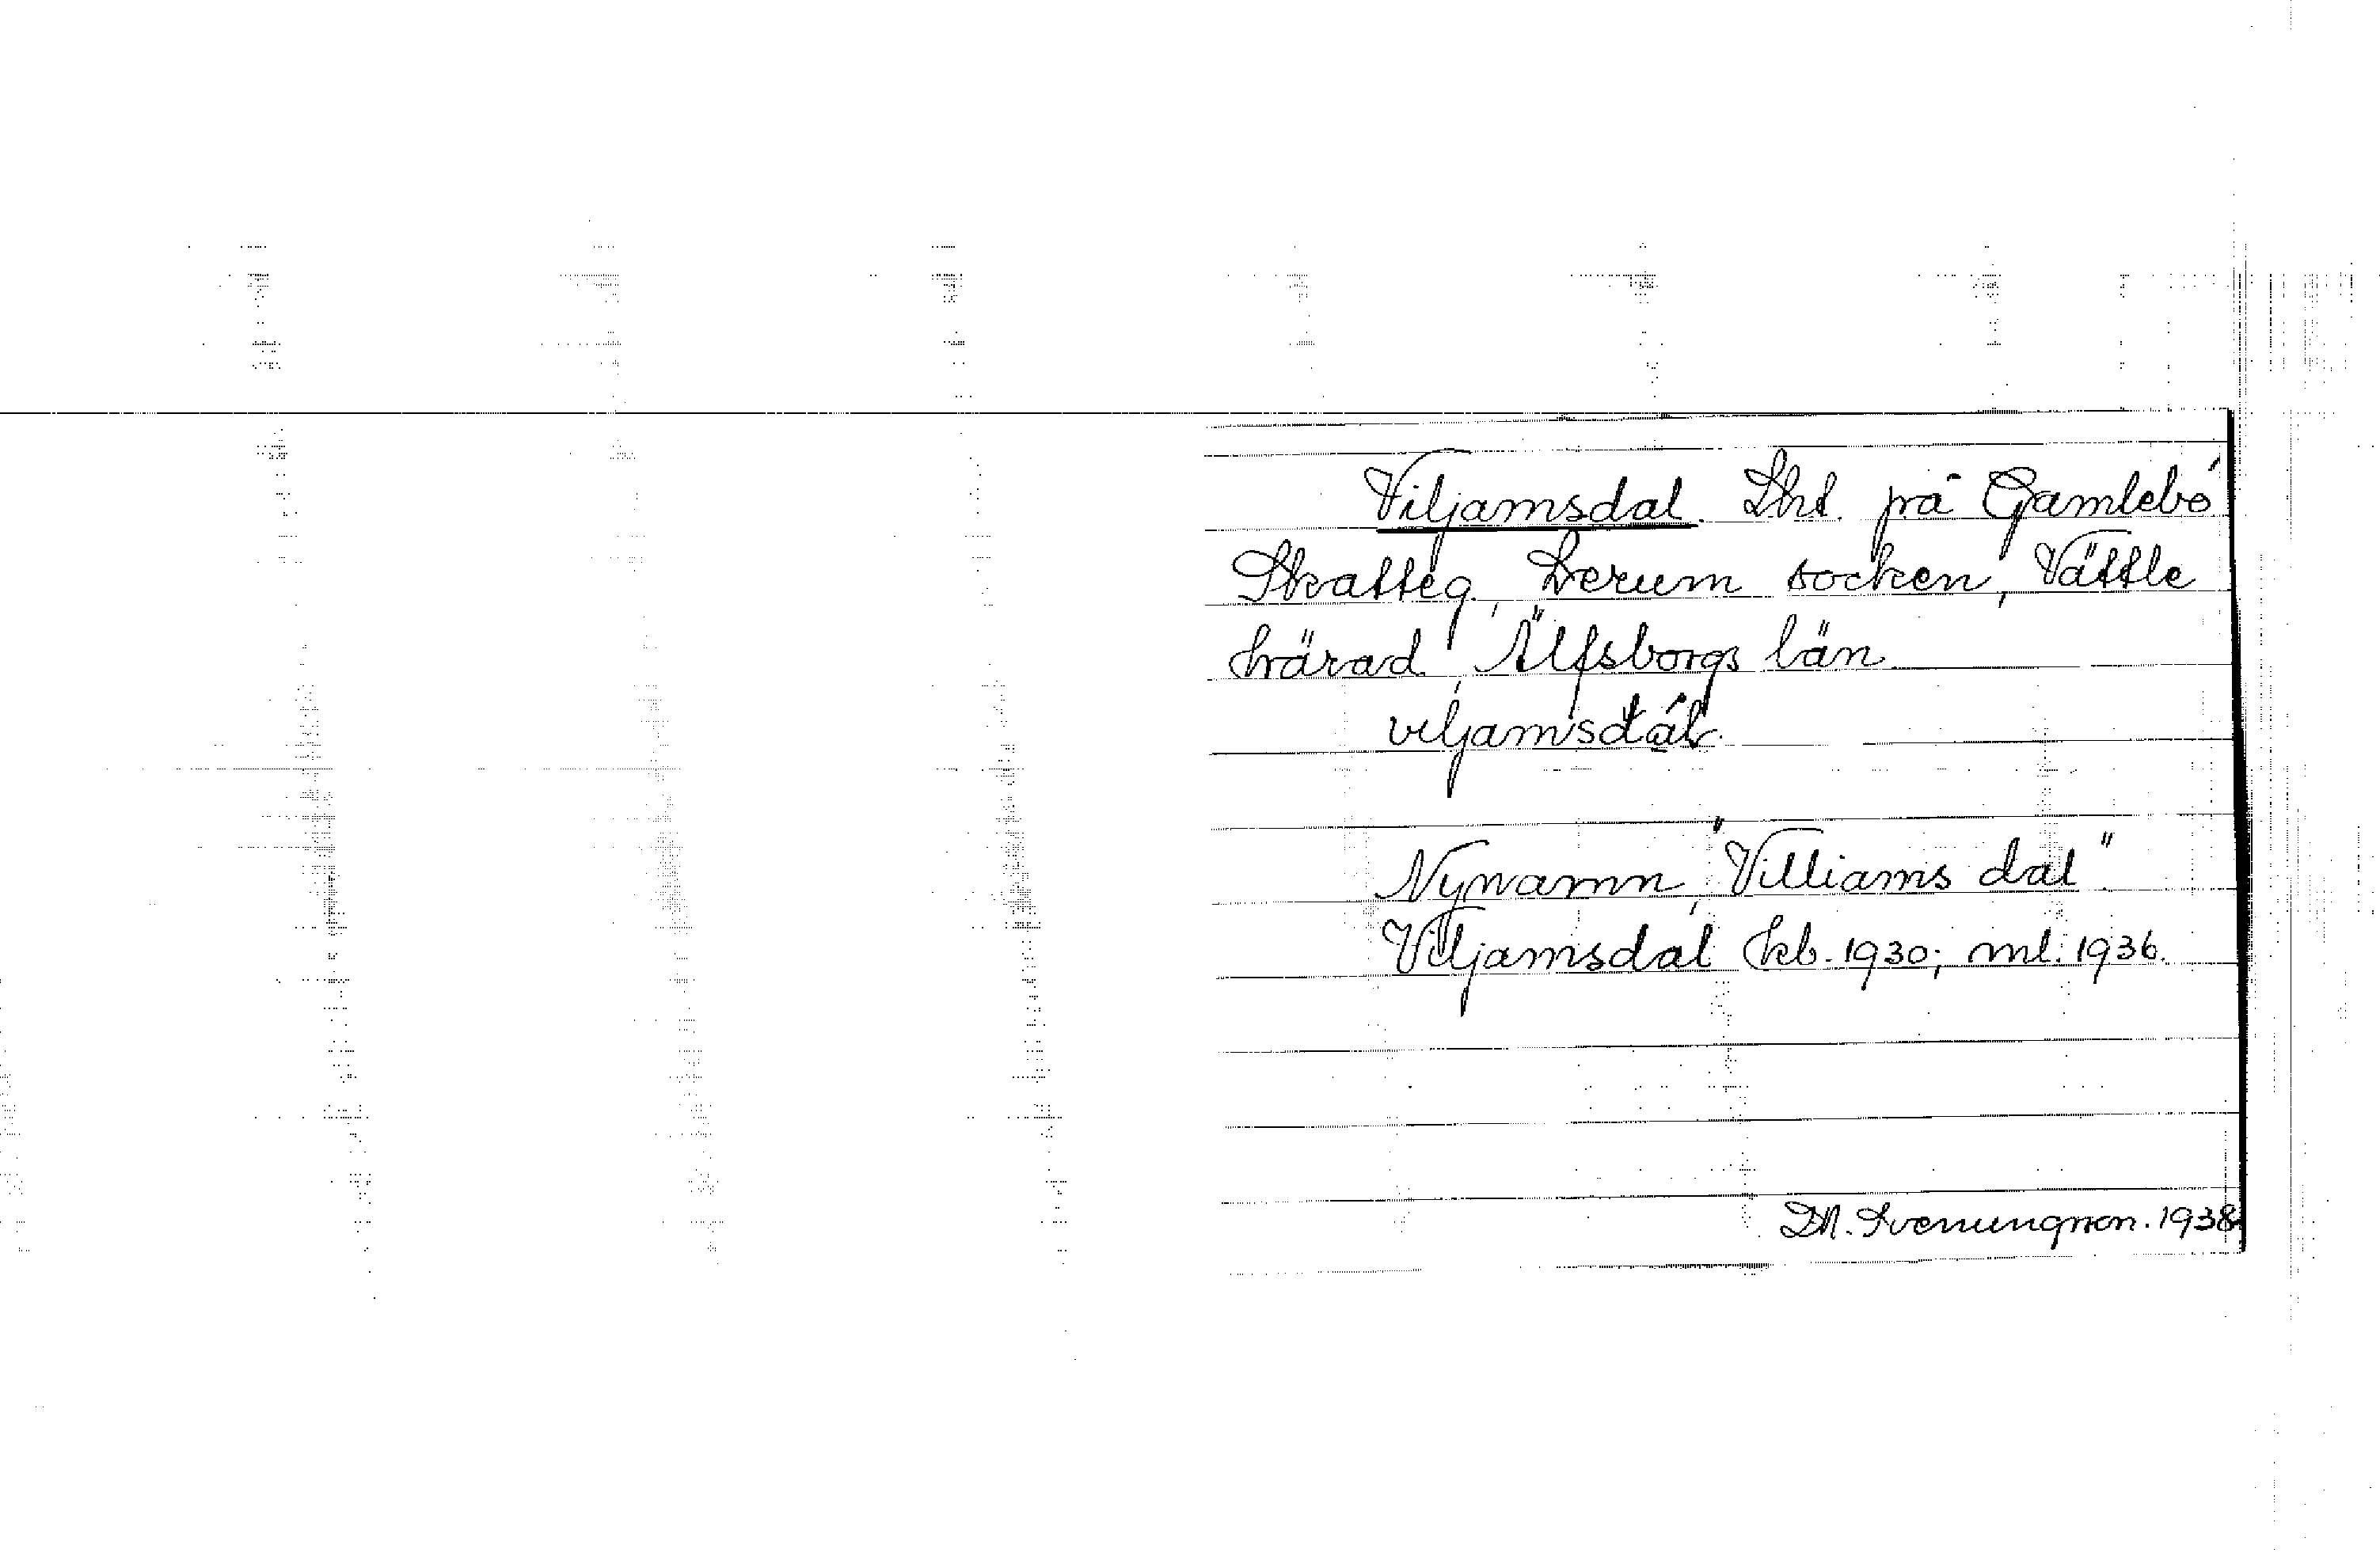 Viljamsdal. Lht. på Gamlebo
Skatteg., Lerum socken, Vättle
härad, Älfsborgs län
viljamsdál
Nynamn, "Villiams dal"
Viljamsdal kb. 1930; ml. 1936.
D.M. Svenungson. 1938